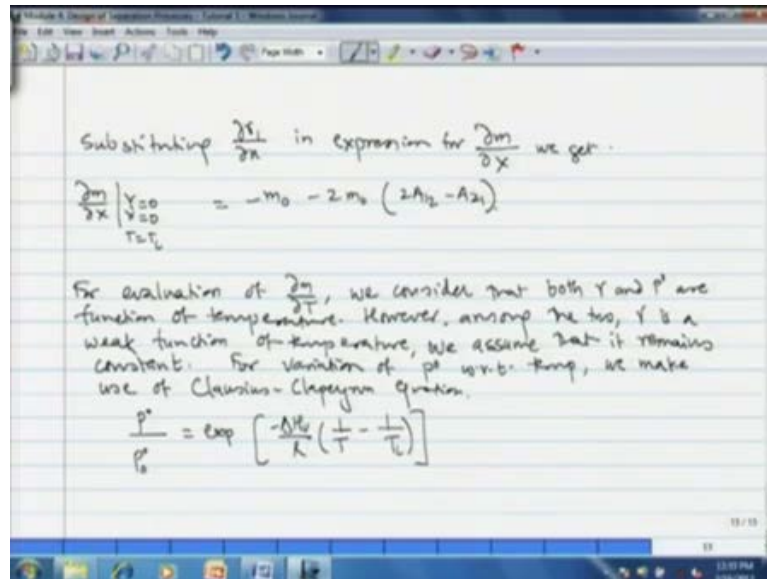 Module 4: Design of Separation Processes - Tutorial 1 - Windows Journal
File Edit View Insert Actions Tools Help
Page Width
Substituting ∂γ₁/∂x in expression for ∂m/∂x we get.
∂m/∂x | Y=0 X=0 T=T_L = -m₀ - 2m₀ (2A₁₂ - A₂₁)
For evaluation of ∂m/∂T, we consider that both γ and P* are
function of temperature. However, among the two, γ is a
weak function of temperature, we assume that it remains
constant. For variation of p* w.r.t. temp, we make
use of Clausius-Clapeyron Equation.
P*/P₀* = exp [-ΔHv/R (1/T - 1/T_L)]
13 / 13
12:10 PM